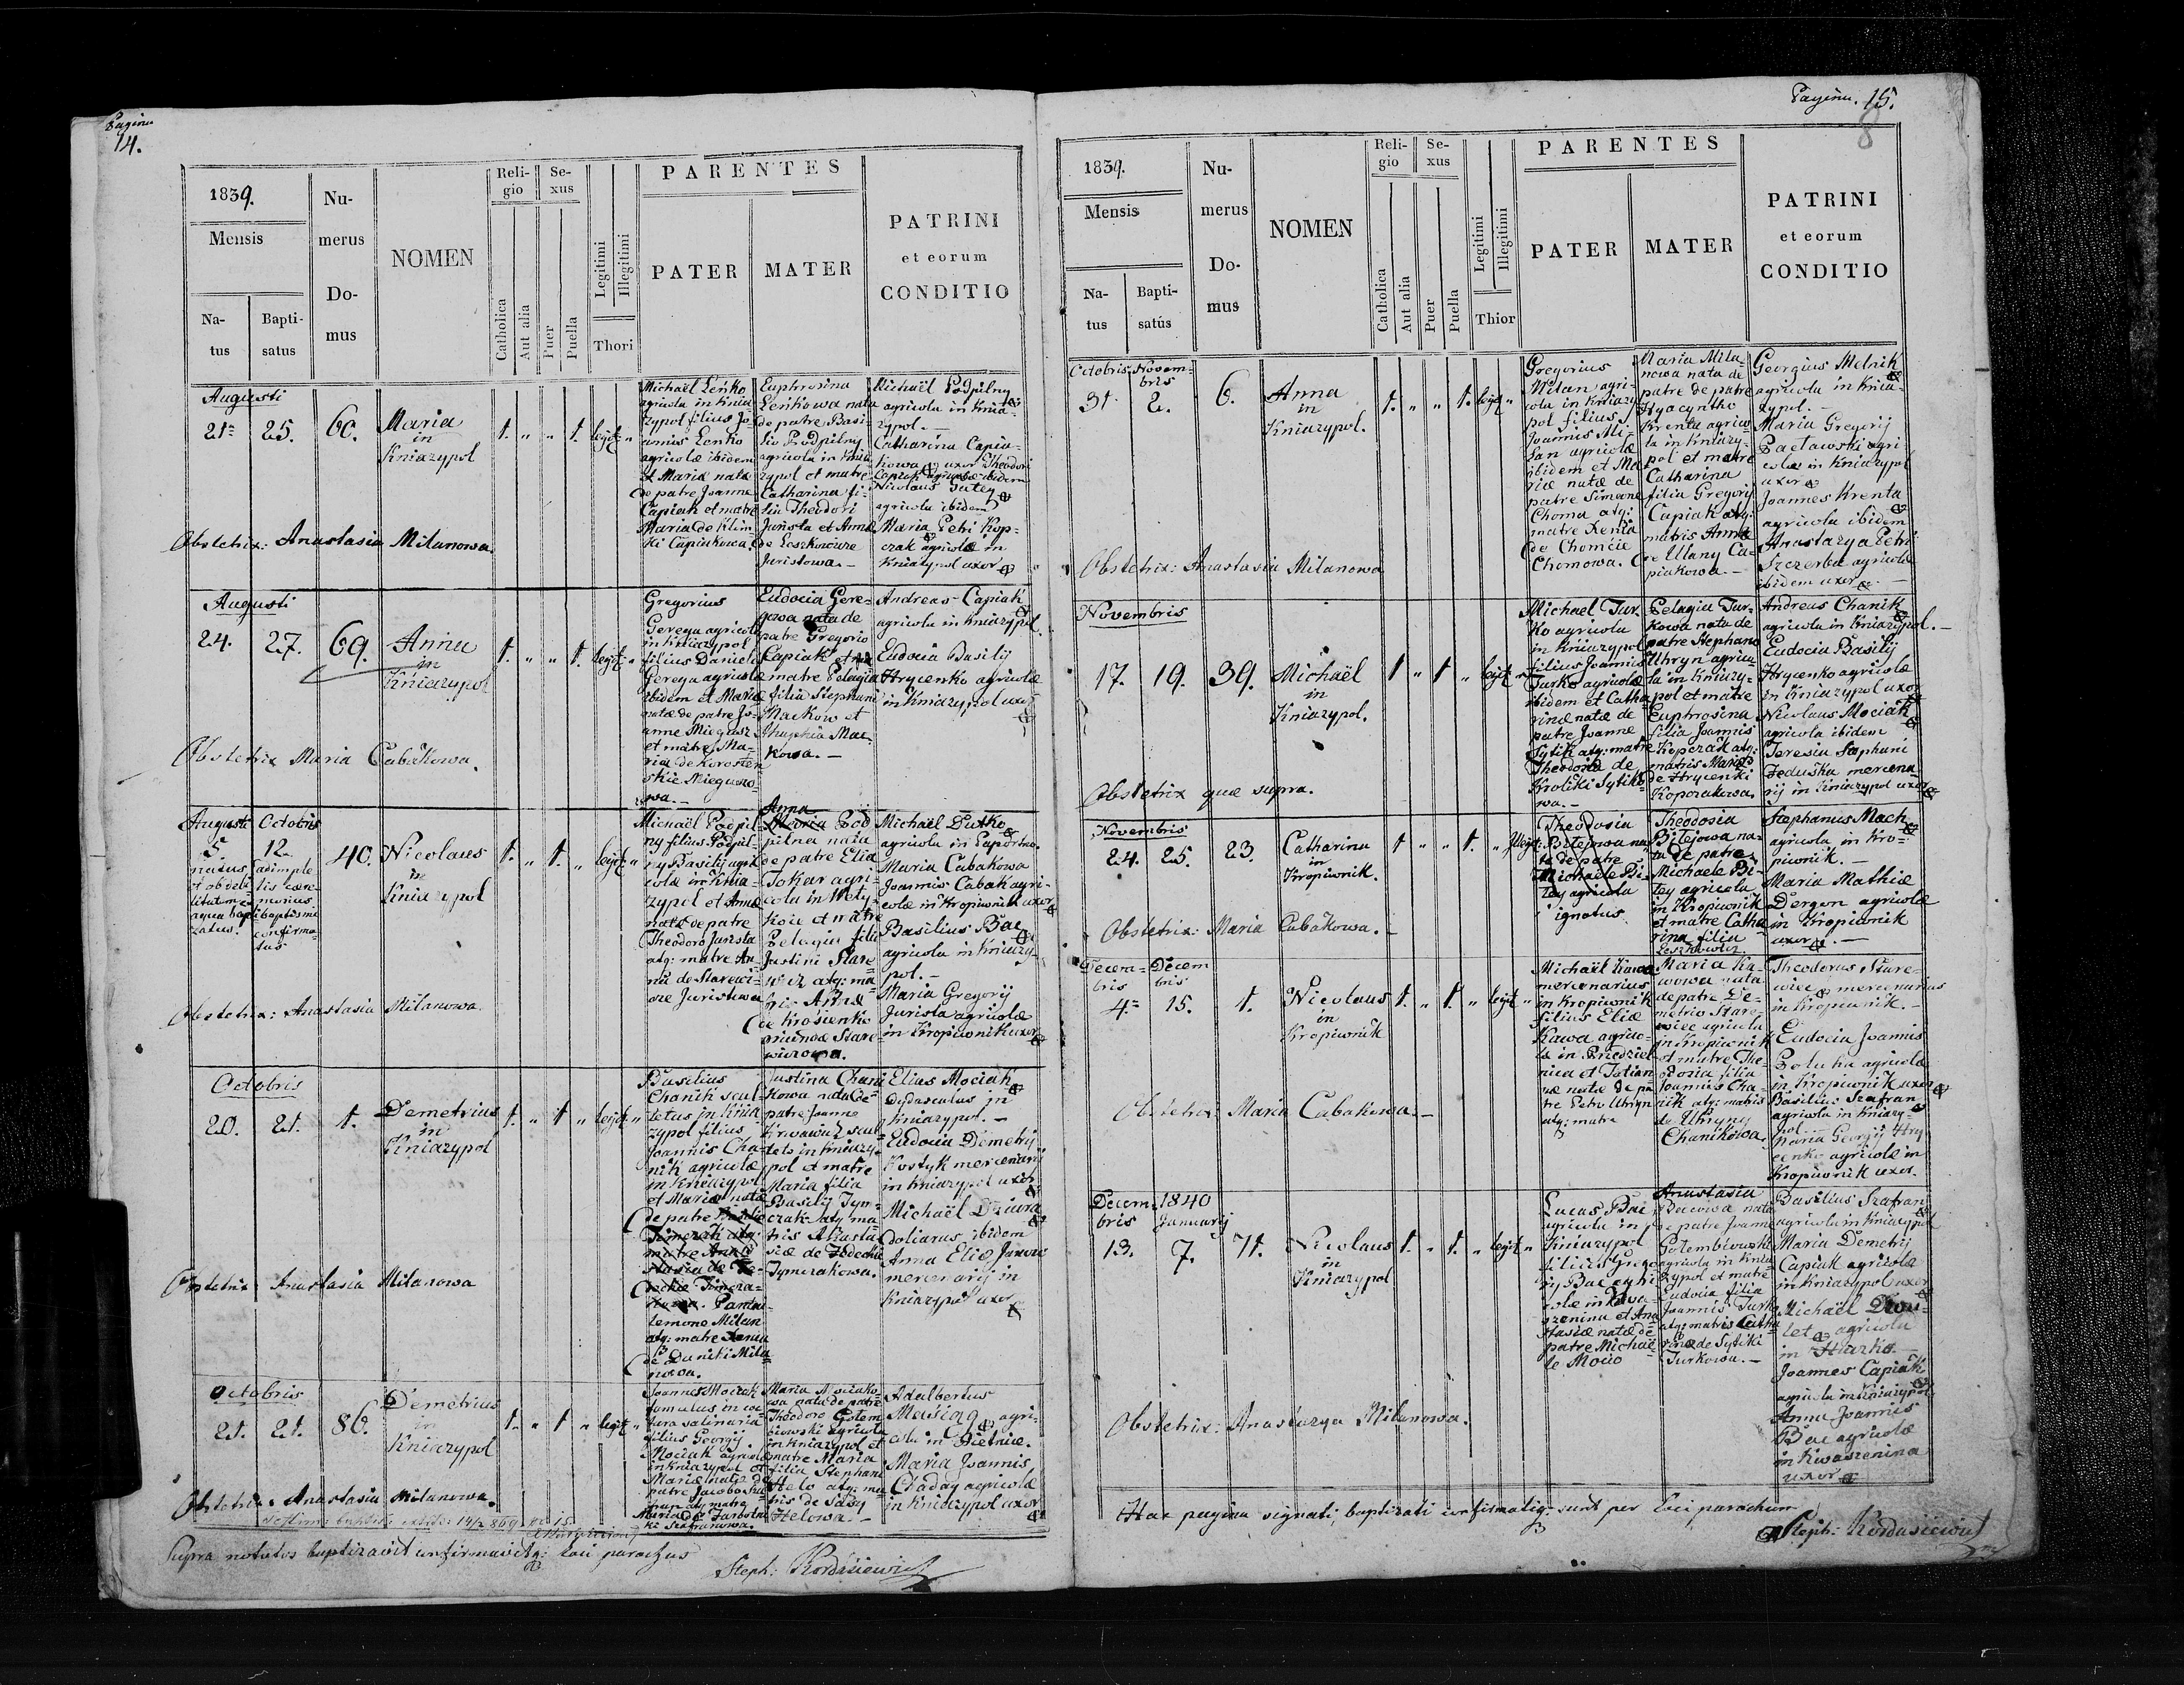 Pagina
14.
1839.
Mensis
Na-
tus
Bapti-
satus
Nu-
merus
Do-
mus
NOMEN
Reli-
gio
Catholica
Aut alia
Se-
xus
Puer
Puella
Legitimi
Illegitimi
Thori
PARENTES
PATER
MATER
PATRINI
et eorum
CONDITIO
Augusti
21=
25.
60.
Maria
in
Kniazypol
1.
"
"
1.
legit:
"
Michaël Leńko
agricola in Knia-
zypol filius Jo-
annis Leńko
agricolæ ibidem
et Mariæ natæ
de patre Joanne
Capiak et matre
Maria de Klim-
ki Capiakowa.
Euphrosina
Leńkowa nata
de patre Basi-
lio Podpilny
agricola in Knia
zypol et matre
Catharina fi-
lia Theodori
Jurista et Annæ
de Leszkowicze
Juristowa.-
Michaël Podpilny
agricola in Knia-
zypol.-
Catharina Capia-
kowa uxor Theodori
Capiak agricolæ ibidem
Nicolaus Tutey
agricola ibidem
Maria Petri Kop-
czak agricolæ in
Kniazypol uxor
Obstetrix: Anastasia Milanowa.
Augusti
24.
27.
69.
Anna
in
Kniazypol
1.
"
"
1.
legit:
"
Gregorius
Gerega agricola
in Kniazypol
filius Danieli
Gerega agricolæ
ibidem et Mariæ
natæ de patre Jo-
anne Niegusz
et matre Ma-
ria de Korosten
skie Nieguszo-
wa.-
Eudocia Gere-
gowa nata de
patre Gregorio
Capiak et
matre Pelagia
filia Stephani
Mackow et
Mac
kowa.-
Andreas Capiak
agricola in Kniazypol.
Eudocia Basilij
Hrycenko agricolæ
in Kniazypol uxor
Obstetrix Maria Cabakowa.
Augusti
Octobris
5
12.
natus
et ob debi-
litatem
aqua bapti
zatus.
adimple
tis cære-
moniis
baptismi
confirma-
tus
40.
Nicolaus
in
Kniazypol
1.
"
1.
"
legit:
"
Michaël Podpil-
ny filius Podpil-
ny Basilij agri-
colæ in Knia-
zypol et Annæ
natæ de patre
Theodoro Jurista
atq: matre An-
na de Starewi-
cze Juristowa
Anna
Maria Pod
pilna nata
de patre Elia
Tokar agri-
cola in Wety-
koie et matre
Pelagia filia
Justini Stare
wicz atq: ma-
tris Annæ
de Krosienko
Stare-
wiczowa.
Michaël Dutko
agricola in
Maria Cabakowa
Joannis Cabak agri-
colæ in Kropiwnik uxor
Basilius Bac
agricola in Kniazy-
pol.-
Maria Gregorij
Jurista agricolæ
in Kropiwnik uxor
Obstetrix: Anastasia Milanowa.
Octobris
20.
21.
1.
Demetrius
in
Kniazypol
1.
"
1
"
legit:
"
Basilius
Chanik scul-
tetus in Knia
zypol filius
Joannis Cha-
nik agricolæ
in Kniazypol
et Mariæ natæ
de patre
atq:
matre
stasia de
Pantae-
lemone Milan
atq: matre Xenia
de Daniki Mila-
nowa.
Justina Chani
kowa nata de
patre Joanne
scul-
teto in Kniazy-
pol et matre
Maria filia
Basilij Tym-
czak atq: ma-
tris Anasta-
siæ de Fedechie
Tymczakowa.
Elias Mociak
Dydasculus in
Kniazypol.-
Eudocia Demetrij
Kostyk mercenarij
in Kniazypol uxor
Michaël Dziura
doliarus ibidem
Anna Eliæ
mercenarij in
Kniazypol uxor
Obstetrix Anastasia Milanowa
Octobris
21.
21.
86.
Demetrius
in
Kniazypol
1.
"
1
"
legit:
"
Joannes Mociak
famulus in coc
tura salinaria
filius Georgij
Mociak agricolæ
in Kniazypol et
Mariæ natæ de
patre Jacobo Sza
fran atq matre
Maria de
ki Szafranowa.
Maria Mociako-
wa nata de patre
Theodoro Golem
biowski agricola
in Kniazypol et
matre Maria
filia Stephani
Helo atq: ma
tris de Sasy
Helowa.-
Adalbertus
Masiąg agri-
cola in Pietnice.
Maria Joannis
Chaday agricolæ
in Kniazypol uxor
Obstetrix: Anastasia Milanowa.
Supra notatos baptizavit confirmavitq: loci parochus
Steph: Kordasiewicz
Pagina. 15.
8
1839.
Mensis
Na-
tus
Bapti-
satus
Nu-
merus
Do-
mus
NOMEN
Reli-
gio
Catholica
Aut alia
Se-
xus
Puer
Puella
Legitimi
Illegitimi
Thior
PARENTES
PATER
MATER
PATRINI
et eorum
CONDITIO
Octobris
Novem-
bris
31.
2.
6.
Anna
in
Kniazypol.
1.
"
"
1.
legit:
"
Gregorius
Milan agri-
cola in Kniazy
pol filius
Joannis Mi-
lan agricolæ
ibidem et Ma
riæ natæ de
patre Simeone
Choma atq:
matre Xenia
de Chomcie
Chomowa.
Maria Mila-
nowa nata de
patre de patre
Hyacyntho
Krenta agrico-
la in Kniazy-
pol et matre
Catharina
filia Gregorij
Capiak atq:
matris Annæ
de Ulany Ca-
piakowa.-
Georgius Melnik
agricola in Knia-
zypol.-
Maria Gregorij
Pacławski agri-
colæ in Kniazypol
uxor
Joannes Krenta
agricola ibidem
Anastazya Petri
Szczerba agricolæ
ibidem uxor.-
Obstetrix: Anastasia Milanowa
Novembris
17.
19.
39.
Michaël
in
Kniazypol.
1
"
1
"
legit:
"
Michael Tur-
ko agricola
in Kniazypol
filius Joannis
Turko agricolæ
ibidem et Catha
rinæ natæ de
patre Joanne
Sytik atq: matre
Theodosia de
Kroliki Sytiko
wa.-
Pelagia Tur-
kowa nata de
patre Stephano
Uhryn agrico-
la in Kniazy-
pol et matre
Euphrosina
filia Joannis
Kopczak atq:
matris Mariæ
de Hrycenki
Kopczakowa.
Andreas Chanik
agricola in Kniazypol.-
Eudocia Basilij
Hrycenko agricolæ
in Kniazypol uxor
Nicolaus Mociak
agricola ibidem
Teresia Stephani
Feduska mercena-
rij in Kniazypol uxor
Obstetrix quæ supra.
Novembris
24.
25.
23.
Catharina
in
Kropiwnik.
1
"
"
1.
"
Illegit:
Theodosia
Bitejowa na
ta de patre
Michaele Bi-
tey agricola
ignotus
Theodosia
Bitejowa na-
ta de patre
Michaele Bi-
tey agricola
in Kropiwnik
et matre Catha
rina filia
Leszkowicz
Stephanus Mach
agricola in Kro-
piwnik.-
Maria Mathiæ
Dergon agricolæ
in Kropiwnik
uxor.-
Obstetrix: Maria Cabakowa.-
Decem-
bris
Decem
bris
4.=
15.
1.
Nicolaus
in
Kropiwnik
1.
"
1.
"
legit:
"
Michaël Kawa
mercenarius
in Kropiwnik
filius Eliæ
Kawa agrico-
læ in
nica et Tatian
næ natæ de pa
tre Petro Uhryn
atq: matre
Maria Ka-
wowa nata
de patre De-
metrio Stare-
wicz agricola
in Kropiwnik
et matre The
odosia filia
Joannis Cha-
nik atq: matris
de Uhryny
Chanikowa.
Theodorus Stare-
wicz mercenarius
in Kropiwnik.-
Eudocia Joannis
agricolæ
in Kropiwnik uxor
Basilius Szafran
agricola in Kniazy-
pol.-
Maria Georgij Hry
cenko agricolæ in
Kropiwnik uxor.
Obstetrix: Maria Cabakowa.-
Decem-
bris
1840
Januarij
13.
7.
71.
Nicolaus
in
Kniazypol
1.
"
1.
"
legit:
"
Lucas Bac
agricola in
Kniazypol
filius Grego
rij Bac agri
colæ in Kwa-
szenina et Ana
stasiæ natæ de
patre Michaë
le Mocio
Anastasia
Bacowa nata
de patre Joanne
Gołembiowski
agricola in Knia
zypol et matre
Eudocia filia
Joannis Turko
atq: matris Catha
rinæ de Sytiki
Turkowa.-
Basilius Szafran
agricola in Kniazypol
Maria Demetrij
Capiak agricolæ
in Kniazypol uxor
Michaël
agricola
in
Joannes Capiak
agricola in Kniazypol
Anna Joannis
Bac agricolæ
in Kwaszenina
uxor
Obstetrix: Anastazya Milanowa.
Hac pagina signati, baptizati confirmatiq: sunt per loci parochum
Steph: Kordasiewicz